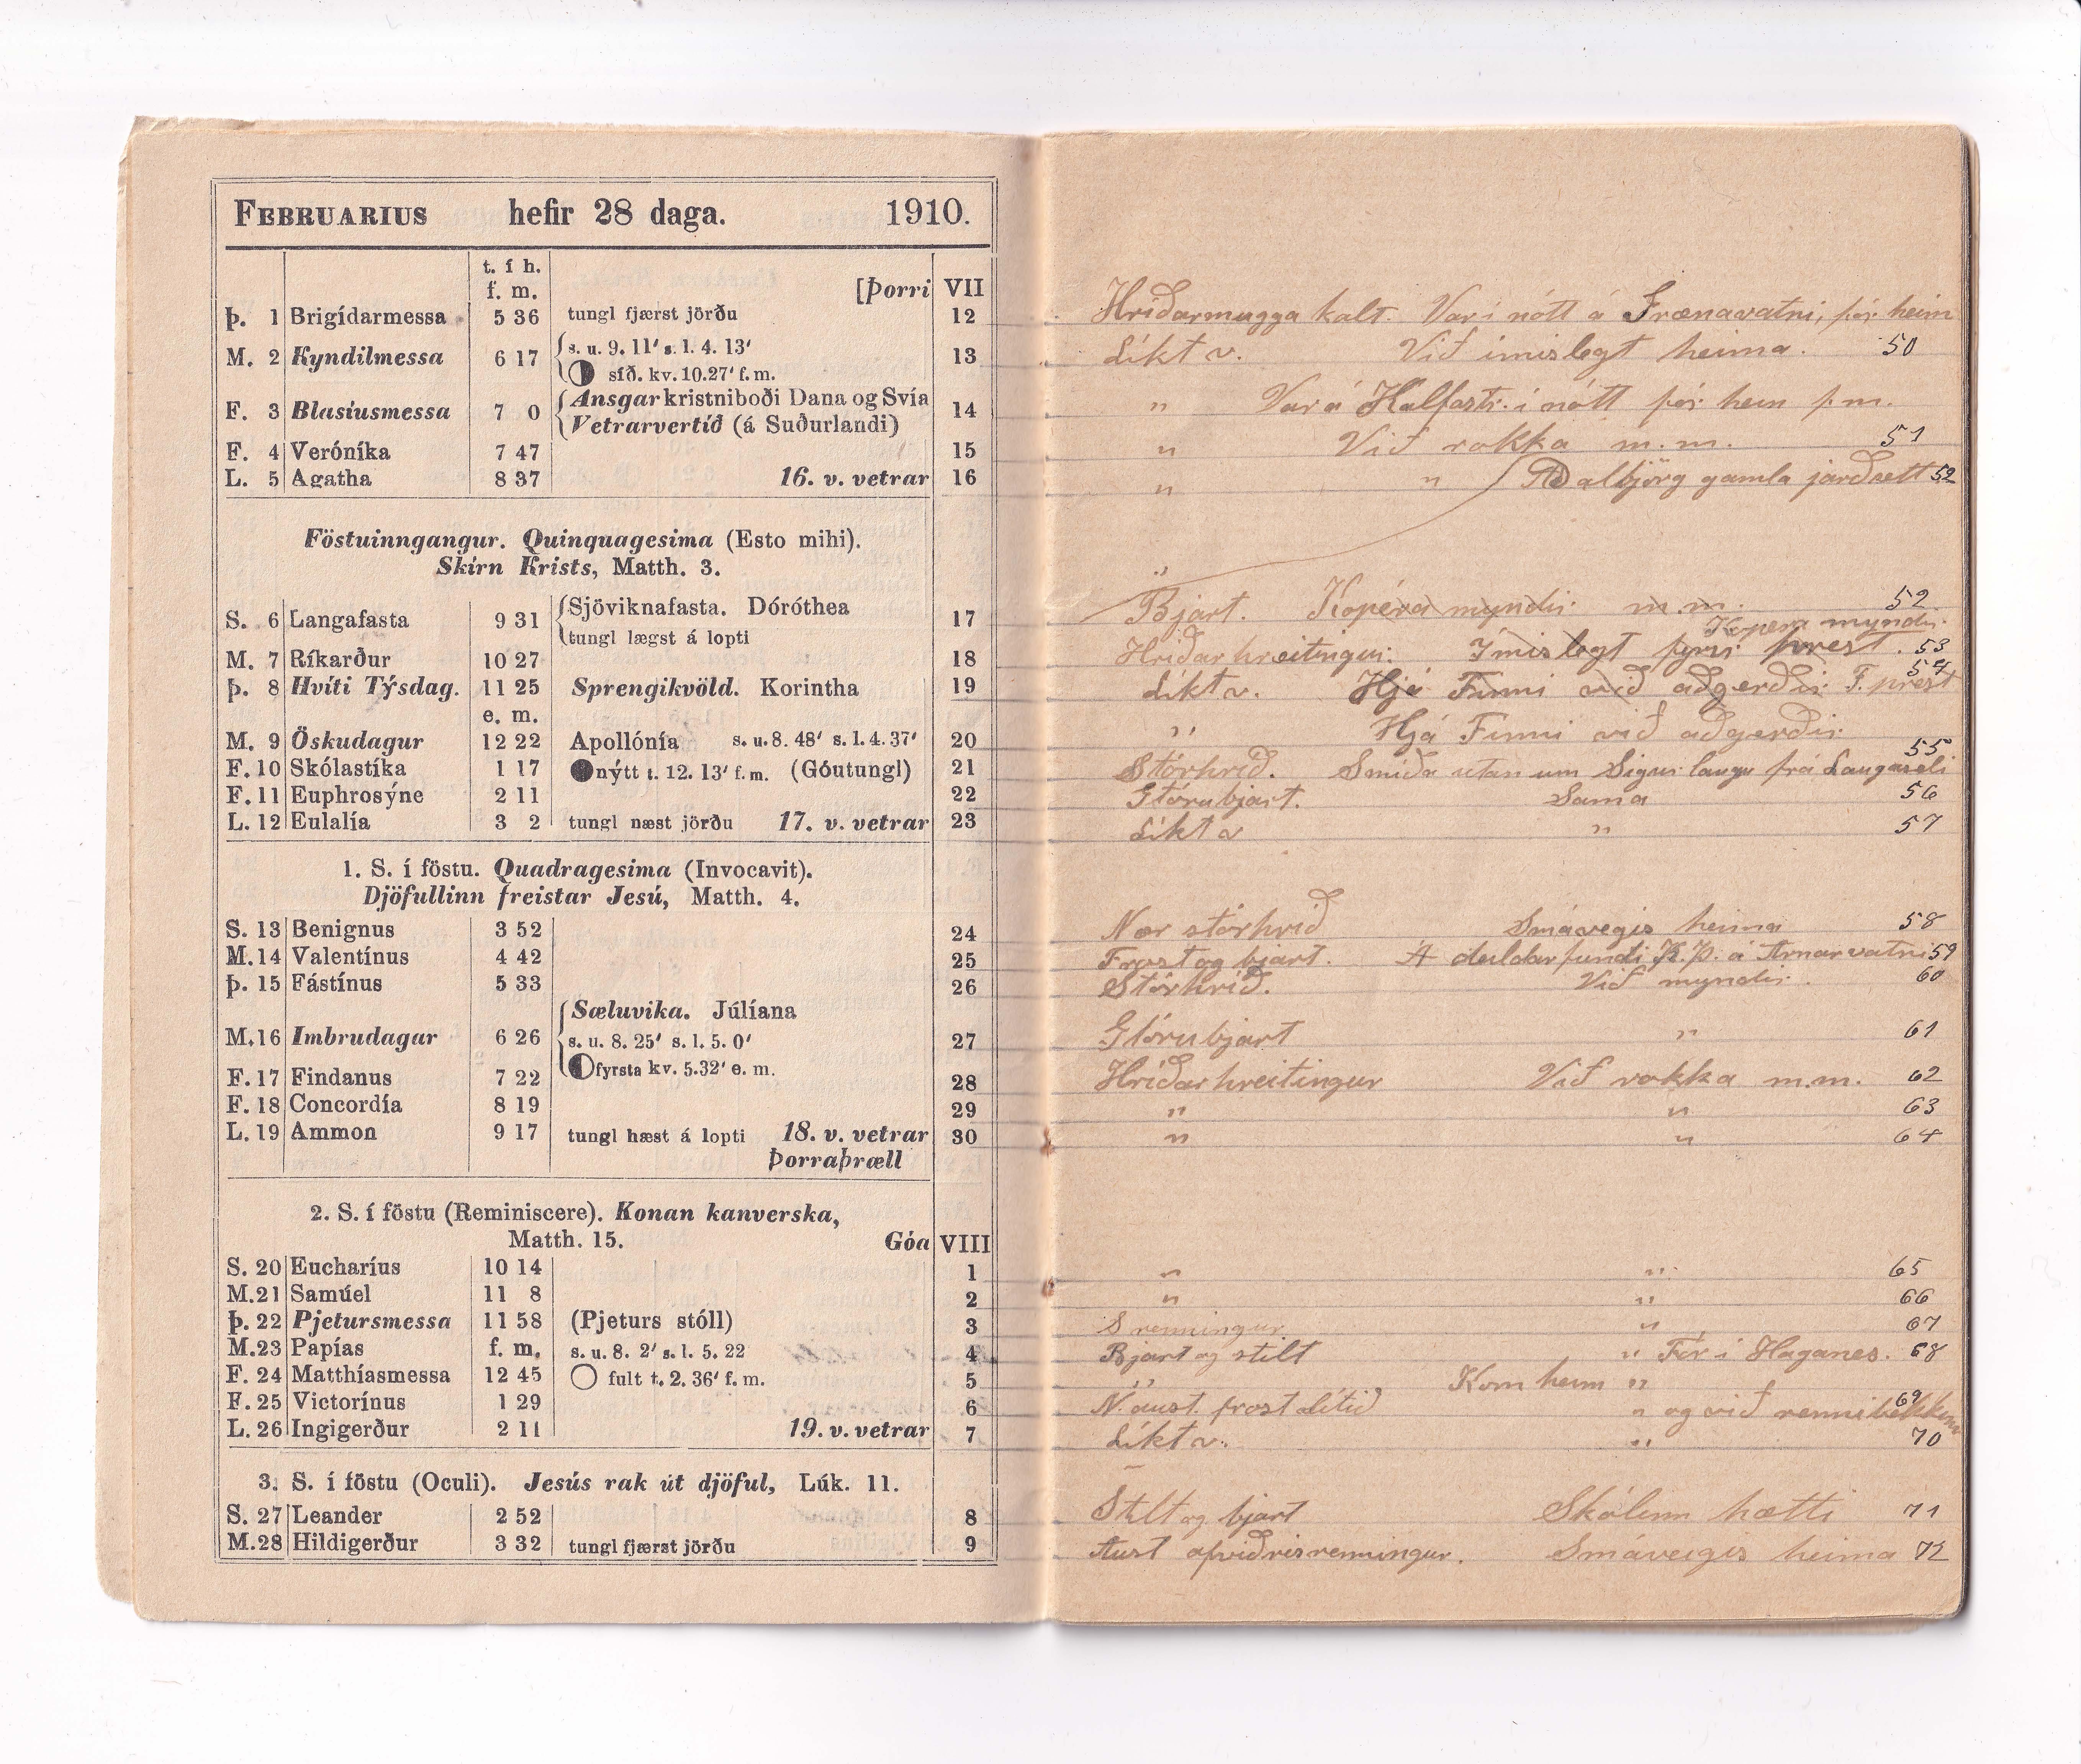 FEBRUARIUS hefir 28 daga. 1910.
t. í h.
f. m. [Þorri VII
Þ. 1 Brigídarmessa 5 36 tungl fjærst jörðu 12
M. 2 Kyndilmessa 6 17 s. u. 9. 11′ s. l. 4. 13′ 13
síð. kv. 10.27′ f. m.
F. 3 Blasíusmessa 7 0 Ansgar kristniboði Dana og Svía 14
Vetrarvertíð (á Suðurlandi)
F. 4 Verónika 7 47 15
L. 5 Agatha 8 37 16. v. vetrar 16
Föstuinngangur. Quinquagesima (Esto mihi).
Skírn Krists, Matth. 3.
S. 6 Langafasta 9 31 Sjöviknafasta. Dóróthea 17
tungl lægst á lopti
M. 7 Ríkarður 10 27 18
Þ. 8 Hvíti Týsdag. 11 25 Sprengikvöld. Korintha 19
e. m.
M. 9 Öskudagur 12 22 Apollónía s. u. 8. 48′ s. l. 4. 37′ 20
F. 10 Skólastíka 1 17 nýtt t. 12. 13′ f. m. (Góutungl) 21
F. 11 Euphrosýne 2 11 22
L. 12 Eulalía 3 2 tungl næst jörðu 17. v. vetrar 23
1. S. í föstu. Quadragesima (Invocavit).
Djöfullinn freistar Jesú, Matth. 4.
S. 13 Benignus 3 52 24
M. 14 Valentínus 4 42 25
Þ. 15 Fástínus 5 33 26
Sæluvika. Júlíana
M. 16 Imbrudagar 6 26 s. u. 8. 25′ s. l. 5. 0′ 27
fyrsta kv. 5.32′ e. m.
F. 17 Findanus 7 22 28
F. 18 Concordía 8 19 29
L. 19 Ammon 9 17 tungl hæst á lopti 18. v. vetrar 30
Þorraþræll
2. S. í föstu (Reminiscere). Konan kanverska,
Matth. 15. Góa VIII
S. 20 Eucharíus 10 14 1
M. 21 Samúel 11 8 2
Þ. 22 Pjetursmessa 11 58 (Pjeturs stóll) 3
M. 23 Papías f. m. s. u. 8. 2′ s. l. 5. 22 4
F. 24 Matthíasmessa 12 45 fult t. 2. 36′ f. m. 5
F. 25 Victorínus 1 29 6
L. 26 Ingigerður 2 11 19. v. vetrar 7
3. S. í föstu (Oculi). Jesús rak út djöful, Lúk. 11.
S. 27 Leander 2 52 8
M. 28 Hildigerður 3 32 tungl fjærst jörðu 9
Hríðarmugga kalt. Var í nótt á Grænavatni, fór heim
Líkt v. Við ímislegt heima. 50
" Var á Kálfastr. í nótt fór heim f.m.
" Við rokka m.m. 51
" " Dalbjörg gamla jarðsett 52
Bjart. Kopéra myndir m.m. 52
Kopera myndir
Hríðarhreitingur. Ímislegt fyrir prest. 53
54
Líkt v. Hjá Finni við aðgerðir F. prest
" Hjá Finni við aðgerðir
55
Stórhríð. Smíða utanum Sigur laugu frá Laugaseli
Glórubjart. Sama 56
Líkt v " 57
Nær stórhríð Smávegis heima 58
Frost og bjart. Á deildarfundi K.Þ. á Arnarvatni 59
Stórhríð. Við myndir. 60
Glórubjart " 61
Hríðarhreitingur Við rokka m.m. 62
" " 63
" " 64
" " 65
" " 66
S renningur " 67
Bjart og stilt " Fór í Haganes. 68
" Kom heim "
N. aust. frost lítið " og við rennibekkinn 69
Líkt v. " 70
Stilt og bjart Skólinn hætti 71
Aust ofviðrisrenningur. Smávegis heima 72